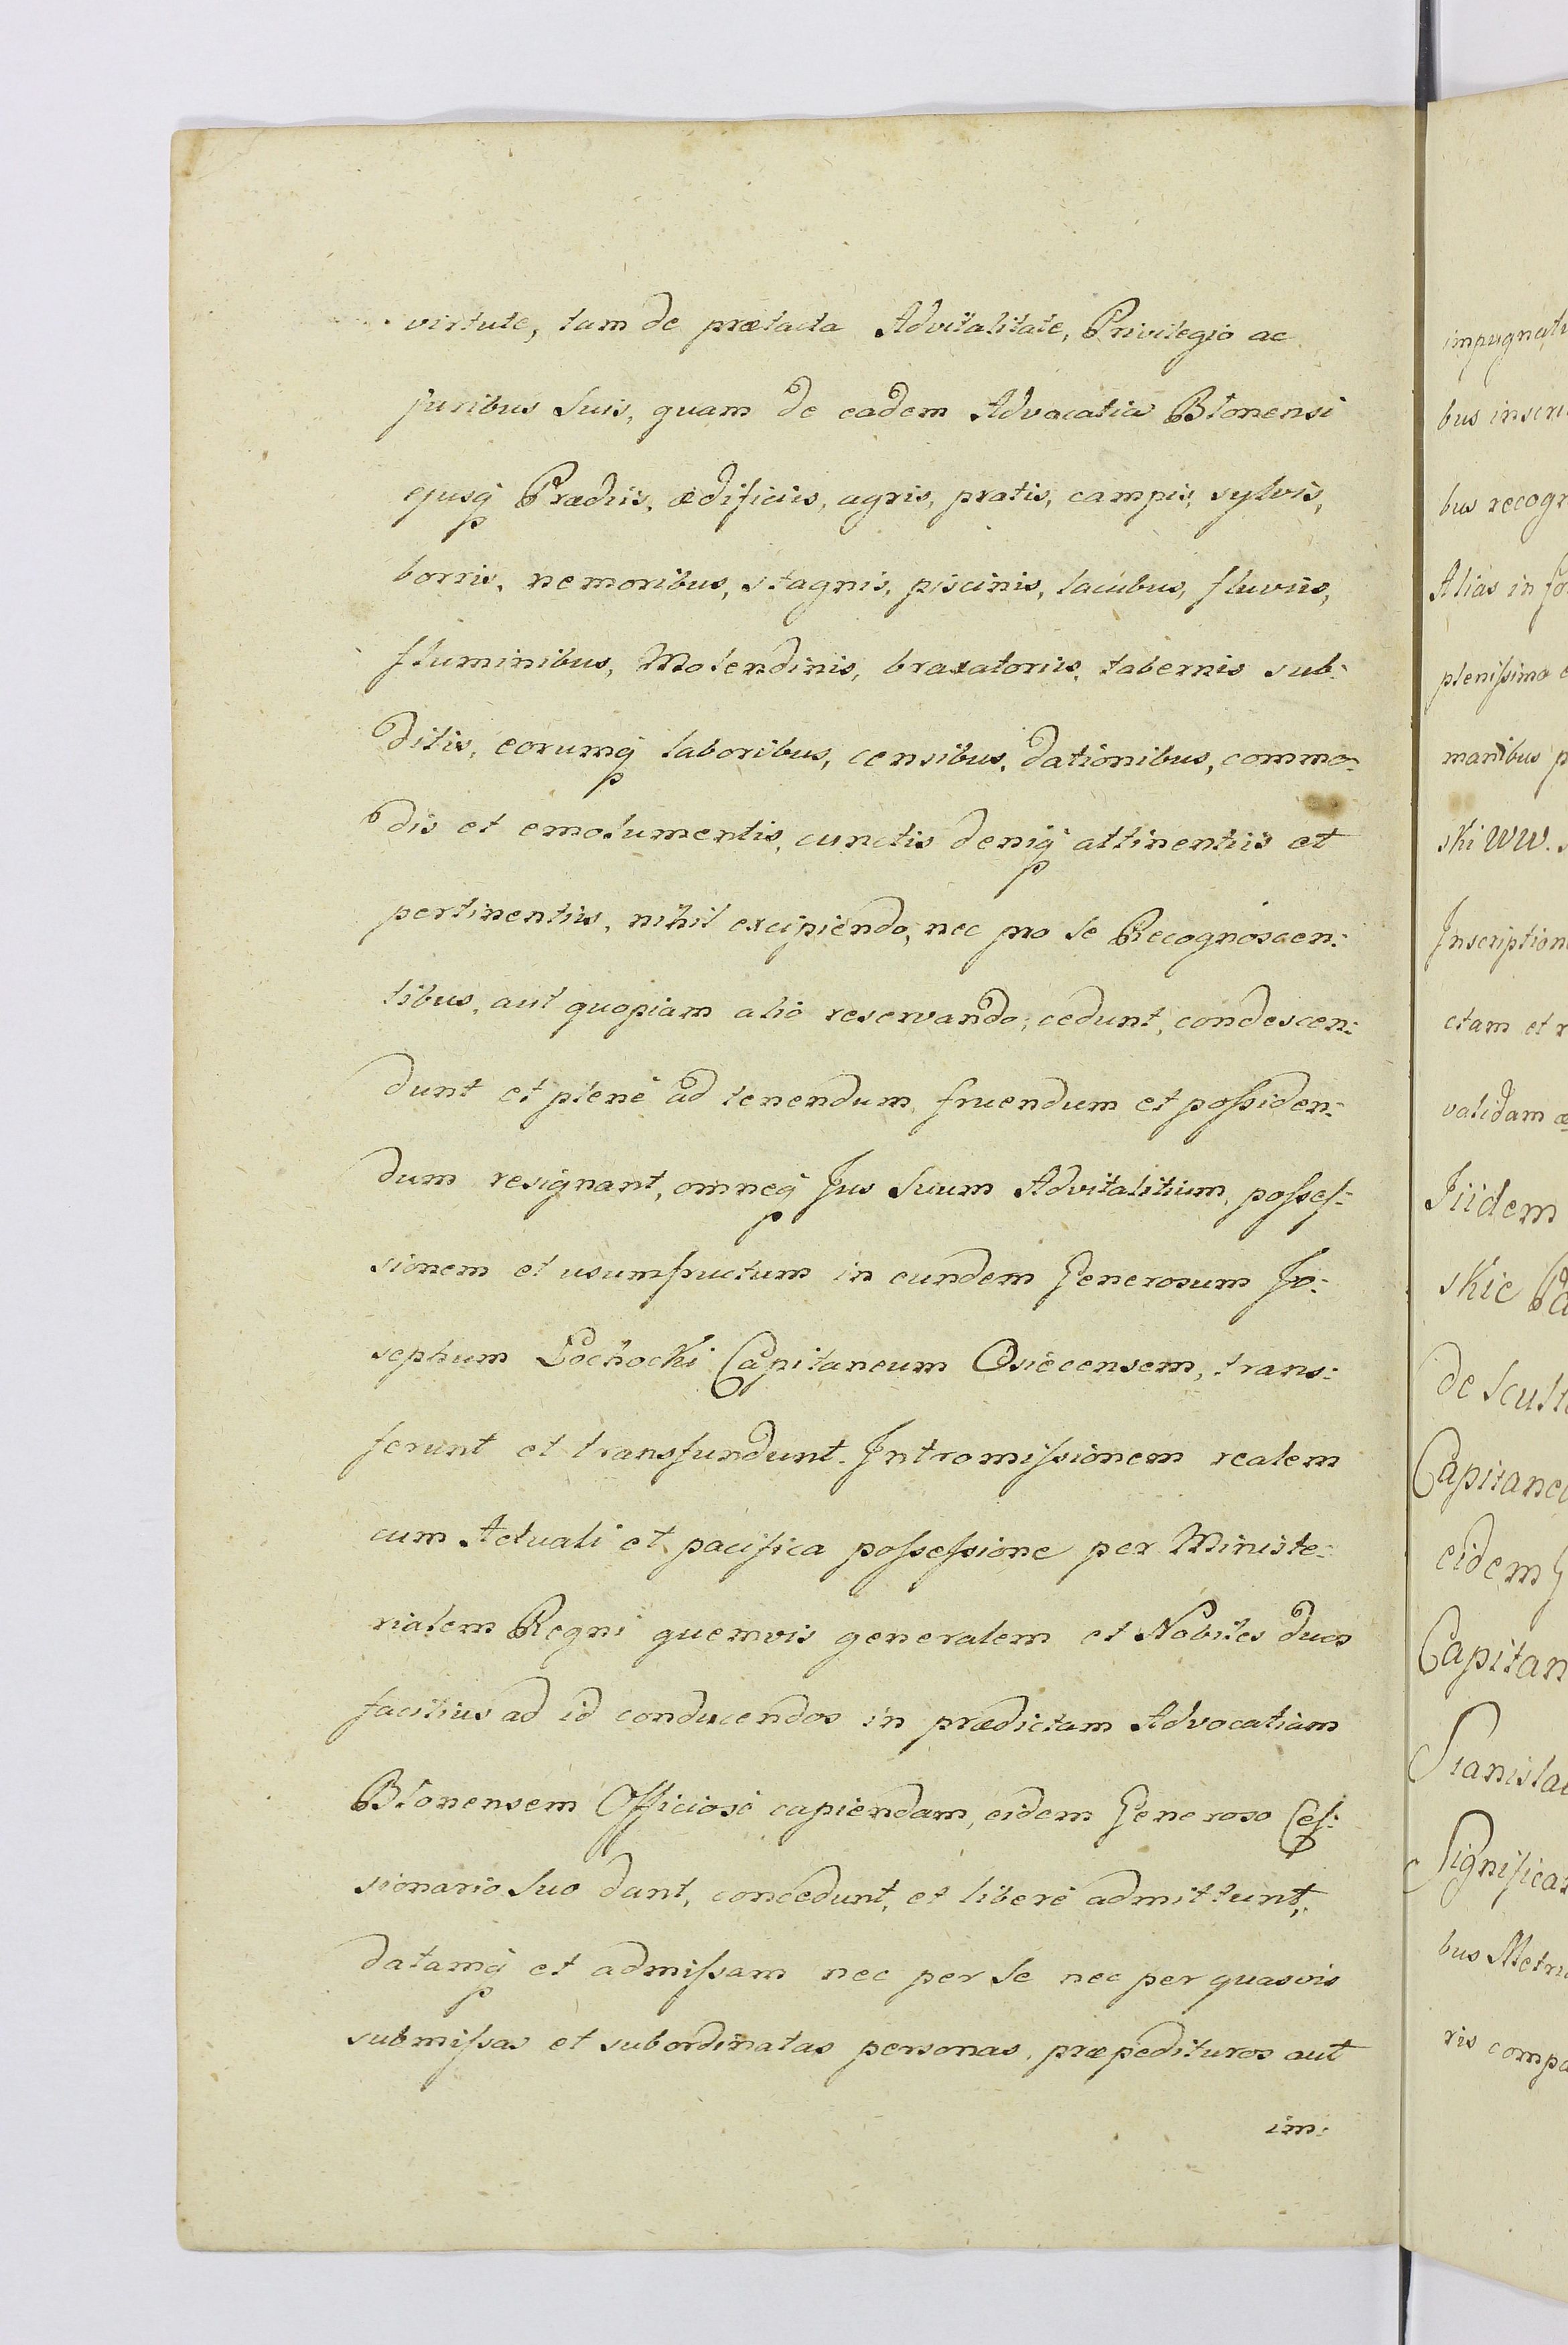 virtute, tam de prætacta Advitalitate, Privilegio ac
juribus suis, quam de eadem Advocatia Błonensi
ejusq Prædiis, ædificiis, agris, pratis, campis, sylvis,
borris, nemoribus, stagnis, piscinis, lacubus, fluviis,
fluminibus, Molendinis, braxatoriis, tabernis sub:
ditis, eorumq laboribus, censibus, dationibus, commo:
dis et emolumentis, cunctis deniq attinentiis et
pertinentiis, nihil excipiendo, nec pro se Recognoscen:
tibus, aut quopiam alio reservando; cedunt, condescen:
dunt et plenè ad tenendum, fruendum et poſsiden:
dum resignant, omneq Jus suum Advitalitium, poſseſ:
sionem et usumfructum in eundem Generosum Jo:
sephum Łochocki Capitaneum Osiecensem, trans:
ferunt et transfundunt. Intromiſsionem realem
cum Actuali et pacifica poſseſsione per Ministe:
rialem Regni quemvis generalem et Nobiles duos
facilius ad id conducendos in prædictam Advocatiam
Błonensem Officiosè capiendam, eidem Generoso Ceſ:
sionario suo dant, concedunt, et liberè admittunt,
datamq et admiſsam nec per se nec per quasvis
submiſsas et subordinatas personas, præpedituros aut
im:
bus
Alias in
pleniſsimo
manibus
ski WW.
ctam et
validam
Iiidem
skie
de
eidem
bus
ris